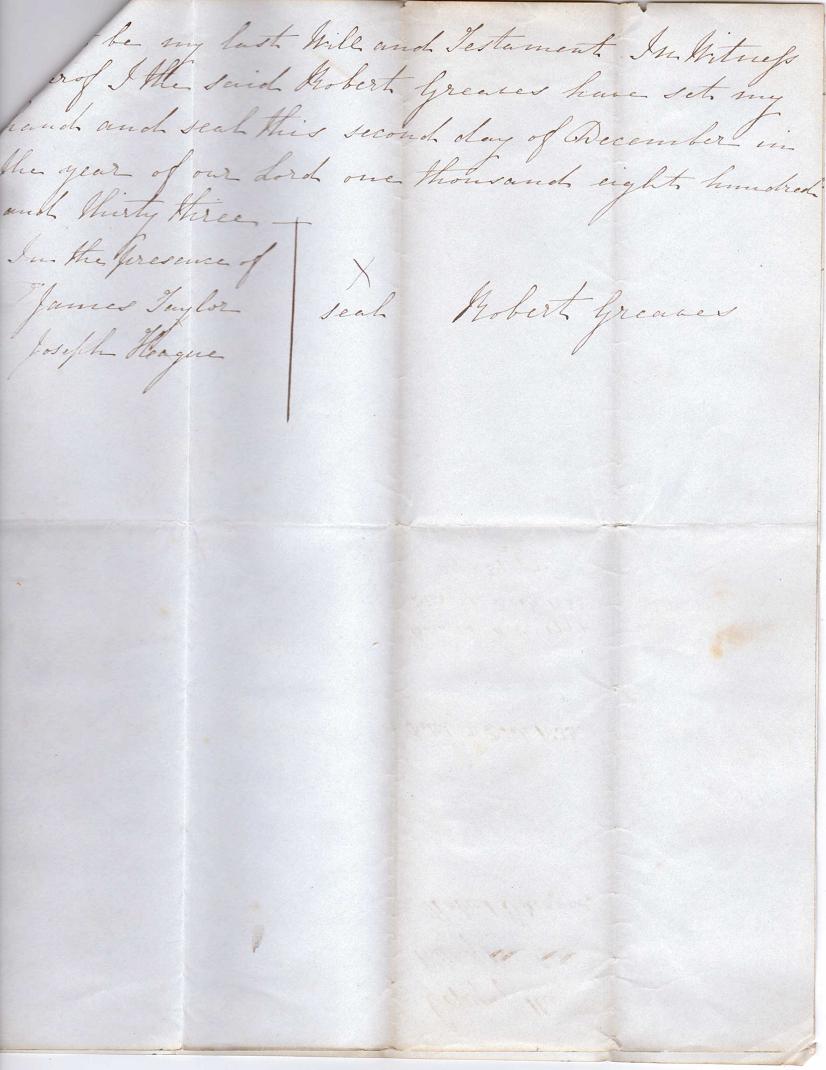 be my last Will and Testament In Witness
erof I the said Robert Greaves have set my
hand and seal this second day of December in
the year of our Lord one thousand eight hundred
and thirty three
In the presence of
James Taylor
Joseph Hague
X
seal
Robert Greaves